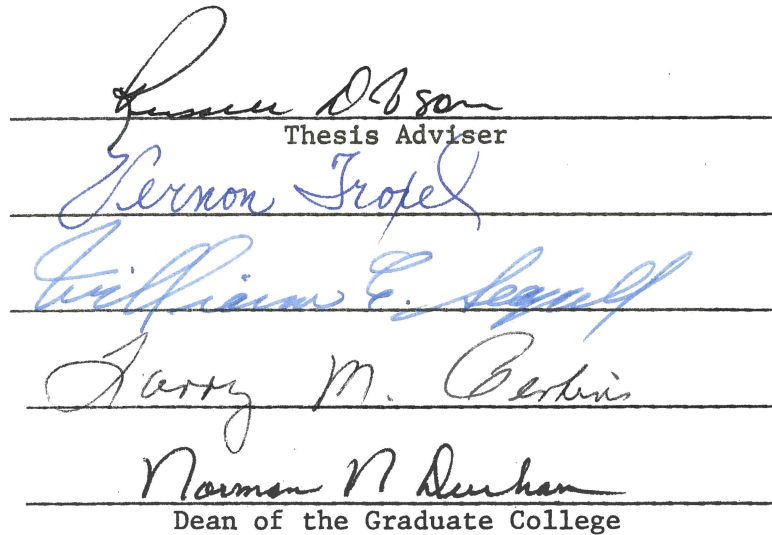 Russell Dobson
Thesis Adviser
Vernon Troxel
William E. Segall
Larry M. Perkins
Norman N Durham
Dean of the Graduate College